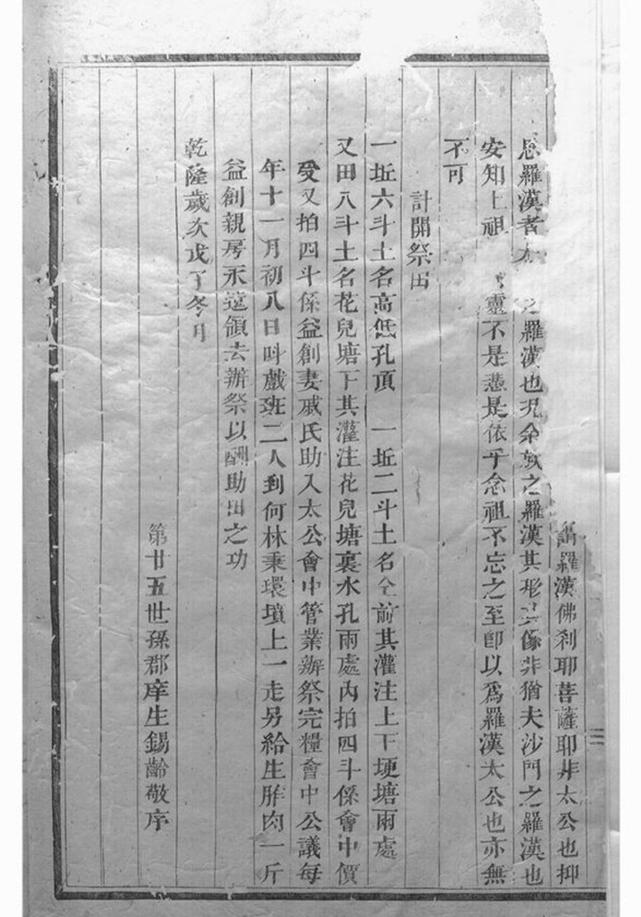 羅漢佛刹耶菩薩耶非太公也抑
思羅漢者 之羅漢也況余族之羅漢其形 係非猶夫沙門之羅漢也
安知上祖 靈不是憑是依乎念祖不忘之至卽以爲羅漢太公也亦無
不可
計開祭田
一坵六斗土名高低孔頂 一坵二斗土名仝前其灌注上下埂塘兩處
又田八斗土名花兒塘下其灌注花兒塘裏水孔兩處內拍四斗係會中價
受又拍四斗係益創妻戚氏助入太公會中管業辦祭完糧會中公議每
年十一月初八日呌戲班二人到何林秉環墳上一走另給生胙肉一斤
益創親房永遠領去辦祭以酬助田之功
乾隆歲次 冬月
第廿五世孫郡庠生錫齡敬序